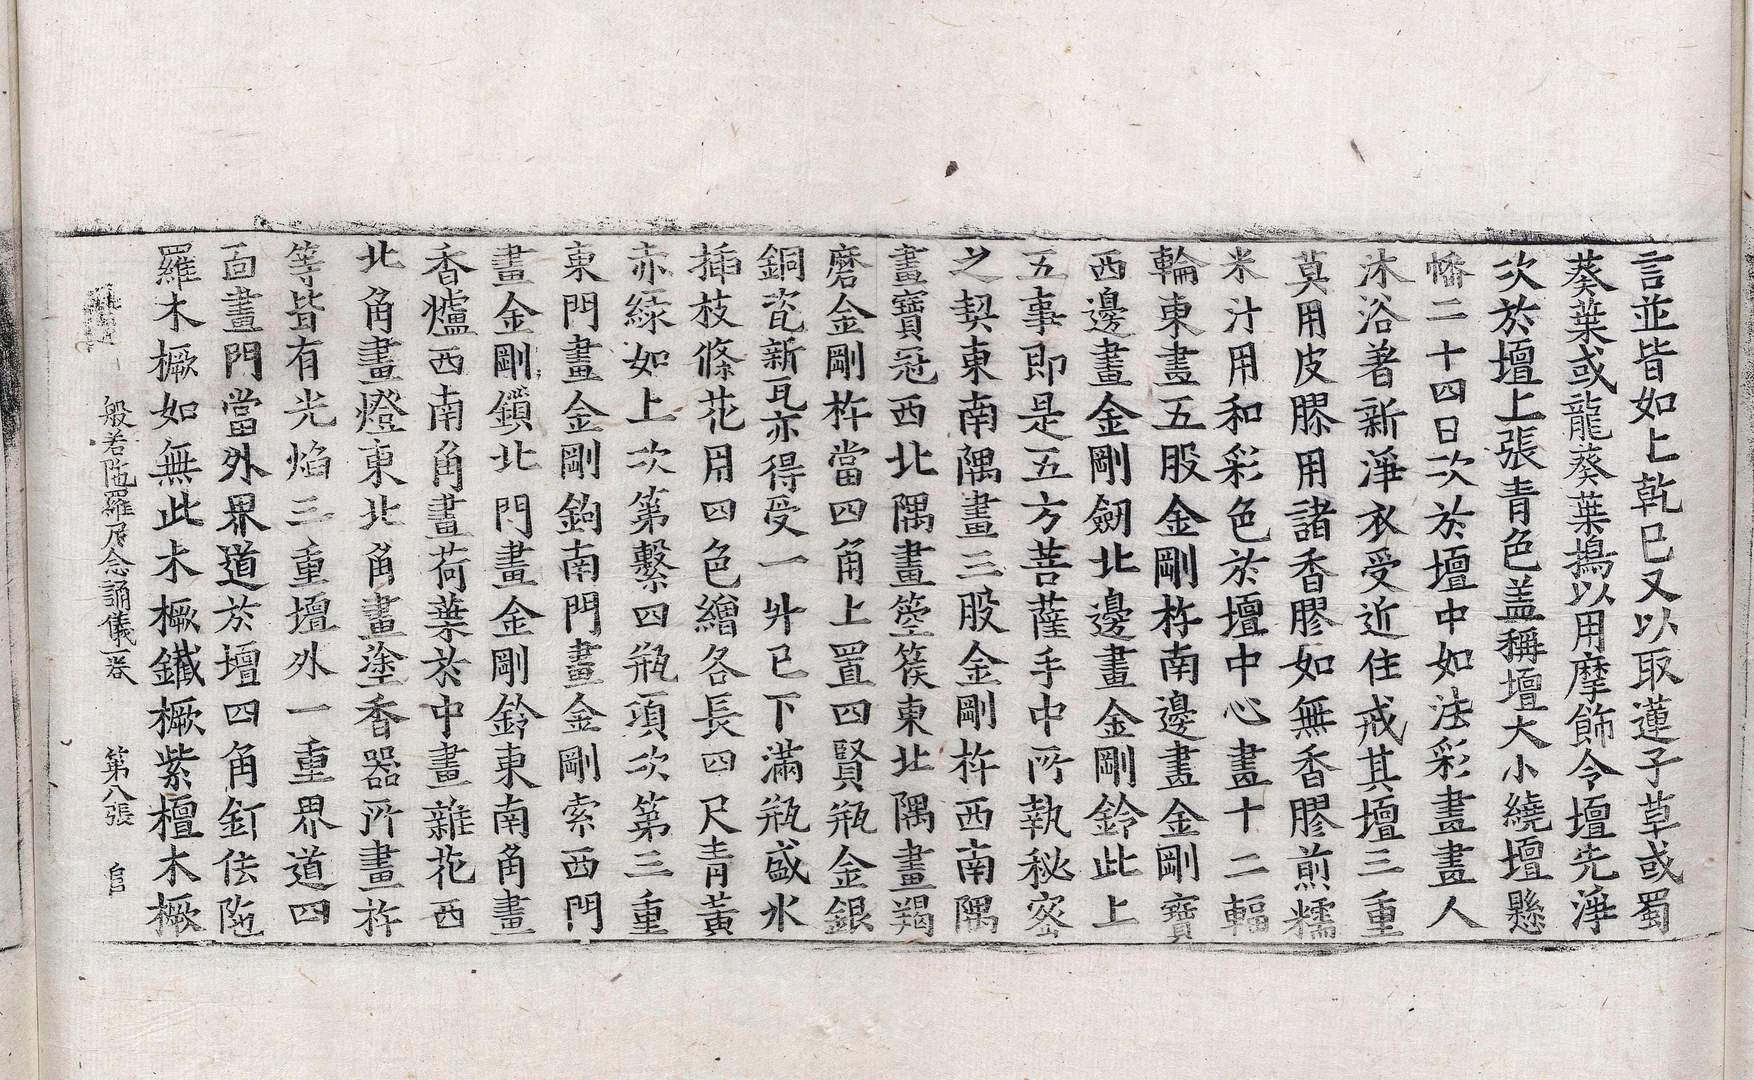 言並皆如上乾已又以取蓮子草或蜀
葵葉或龍葵葉擣以用摩飾令壇先淨
次於壇上張青色盖稱壇大小繞壇懸
幡二十四日次於壇中如法彩畫畫人
沐浴著新淨衣受近住戒其壇三重
莫用皮膠用諸香膠如無香膠煎糯
米汁用和彩色於壇中心畫十二輻
輪東畫五股金剛杵南邊畫金剛寶
西邊畫金剛劒北邊畫金剛鈴此上
五事即是五方菩薩手中所執秘密
之契東南隅畫三股金剛杵西南隅
畫寶冠西北隅畫箜篌東北隅畫羯
磨金剛杵當四角上置四賢瓶金銀
銅瓷新瓦亦得受一升已下滿瓶盛水
插枝條花用四色繒各長四尺青黃
赤綠如上次第繫四瓶項次第三重
東門畫金剛鉤南門畫金剛索西門
畫金剛鎖北門畫金剛鈴東南角畫
香爐西南角畫荷葉於中畫雜花西
北角畫燈東北角畫塗香器所畫杵
等皆有光焰三重壇外一重界道四
面畫門當外界道於壇四角釘佉陁
羅木橛如無此木橛鐵橛紫檀木橛
般若陁羅尼念誦儀一卷 第八張